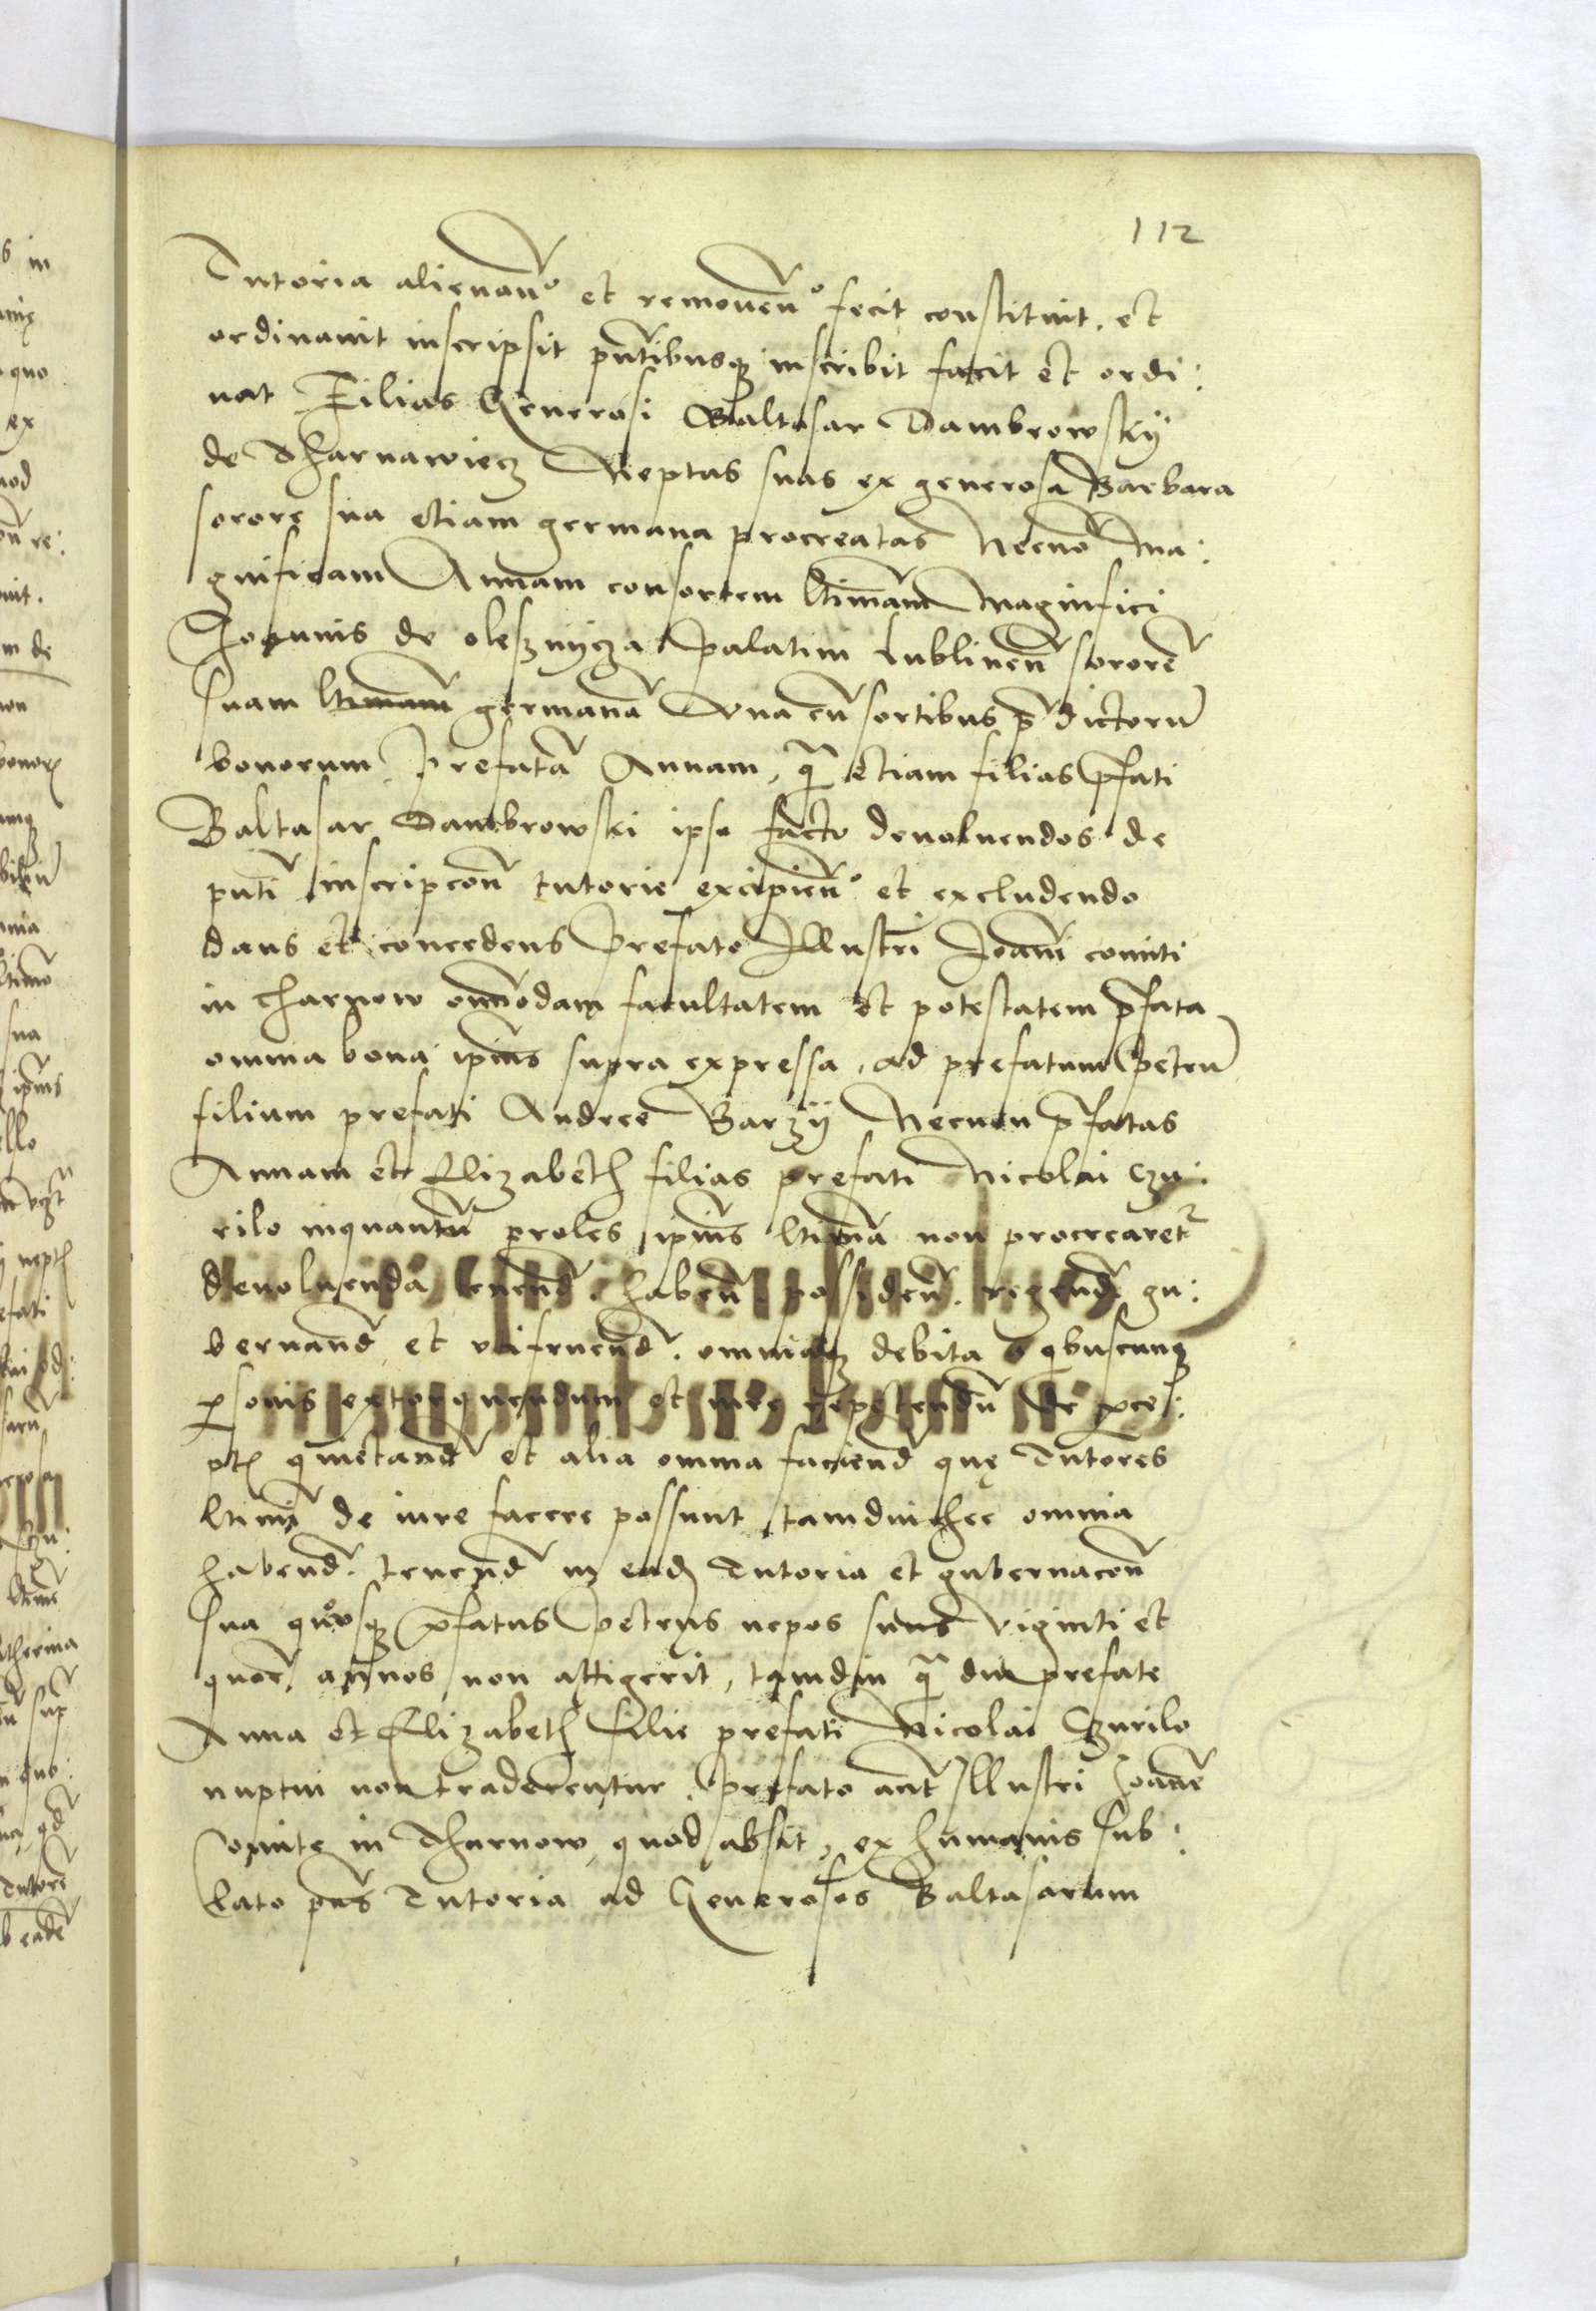 112
Tutoria alienan° et removen° fecit constituit. et
ordinavit inscripsit pñtibusq; inscribit facit et ordi:
nat Filias Generosi Baltasar Dambrowskÿ
de Tharnawiecz Neptas suas ex generosa Barbara
sorore sua etiam germana procreatas Necnō Ma:
gnificam Annam consortem ltimam Magnifici
Joannis de olesznÿcza palatini Lublineñ sororē
suam ltimam germanā Una cū sortibus p̄dictorū
bonorum Prefatā Annam, q̄ etiam filias p̄fati
Baltasar Dambrowski ipso facto devoluendos de
pñti inscripcoñ tutorie excipieñ° et excludendo
dans et concedens Prefato Illustri Joañi comiti
in Tharnow omñodam facultatem et potestatem p̄fata
omnia bona ipsius supra expressa, ad prefatum Petrū
filium prefati Andree Barzÿ Necnon p̄fatas
Annam et Elizabeth filias prefati Nicolai Czu:
rilo inquantū proles ipsius ltima non procrearet̄
devoluenda tenend. habeñ. possideñ. regend gu:
bernand et utifruend. omniaq; debita a qbuscunq;
p̱sonis extorquendum et iure repetendū de p̱ce:
pt quietand et alia omnia faciend que Tutores
ltimi de iure facere possunt tamdiu hec omnia
habend. tenend in ead Tutoria et gubernacoñ
sua quousq; p̄fatus Petrus nepos suus viginti et
quor annos non attigerit, tamdiu q̄ diu prefate
Anna et Elizabeth filie prefati Nicolai Czurilo
nuptui non traderentur. Prefato aut Illustri Joanne
Comite in Tharnow, quod absit, ex humanis sub:
lato pñs Tutoria ad Generosos Baltasarum